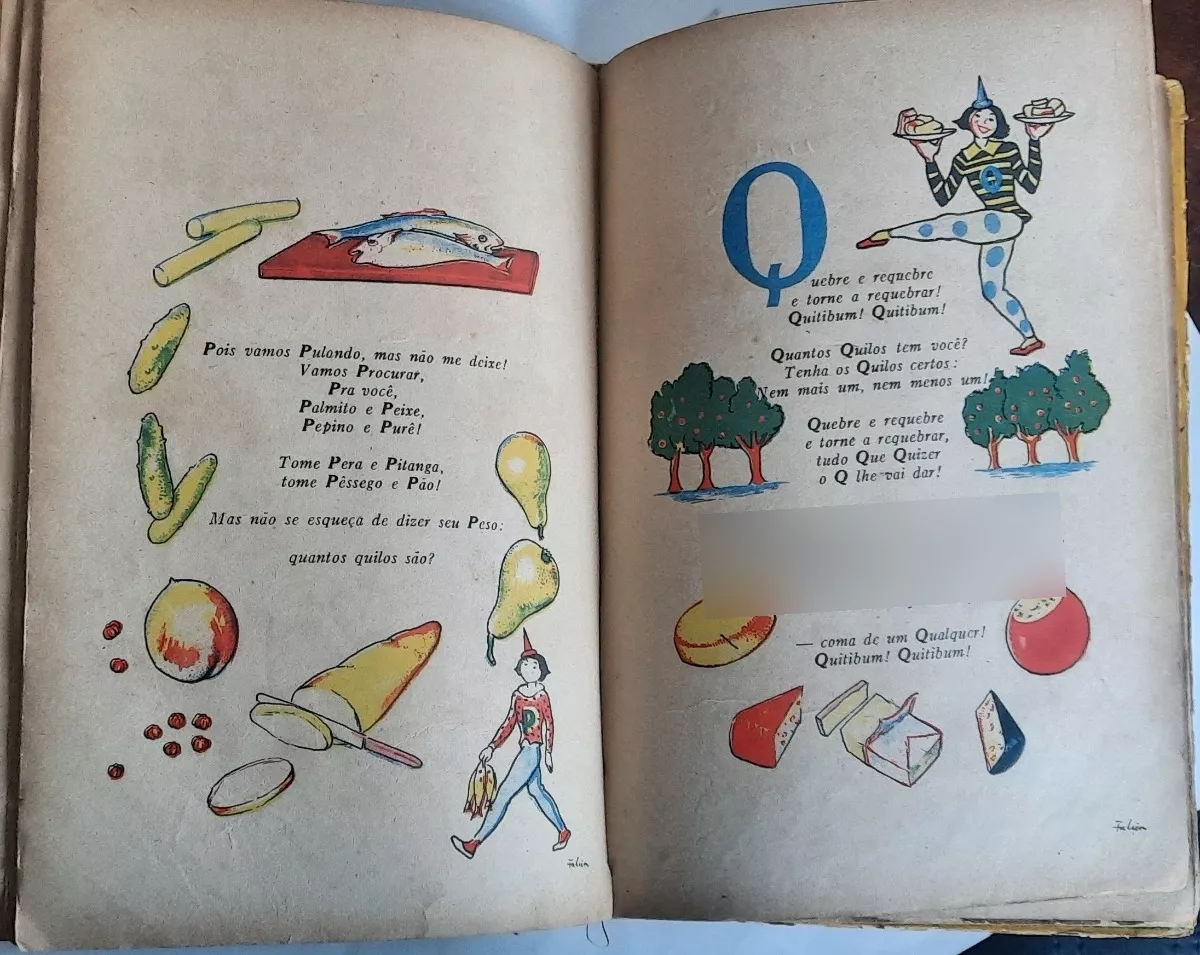 Pois vamos Pulando, mas não me deixe!
Vamos Procurar,
Pra você,
Palmito e Peixe,
Pepino e Purê!
Tome Pera e Pitanga,
tome Pêssego e Pão!
Mas não se esqueça de dizer seu Peso:
quantos quilos são?
P
Q
Q
Quebre e requebre
e torne a requebrar!
Quitibum! Quitibum!
Quantos Quilos tem você?
Tenha os Quilos certos:
Nem mais um, nem menos um!
Quebre e requebre
e torne a requebrar,
tudo Que Quizer
o Q lhe vai dar!
— coma de um Qualquer!
Quitibum! Quitibum!